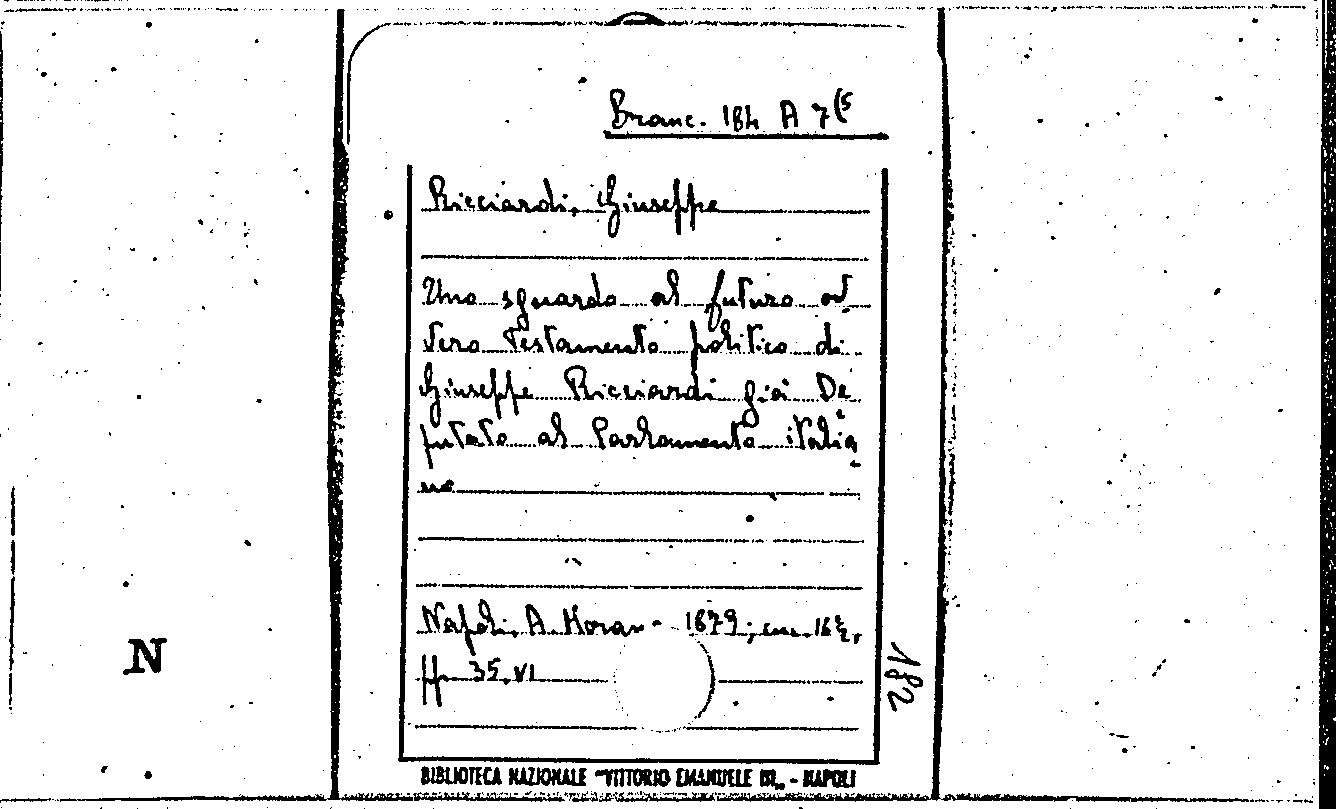 Branc. 184 A 7(5
Ricciardi, Giuseppe
Uno sguardo al futuro ov
vero Testamento politico di
Giuseppe Ricciardi già De
putato al Parlamento italia
no
Napoli, A. Moran 1879; in 16º,
pp 35. VI
182
N
BIBLIOTECA NAZIONALE "VITTORIO EMANUELE III„ - NAPOLI